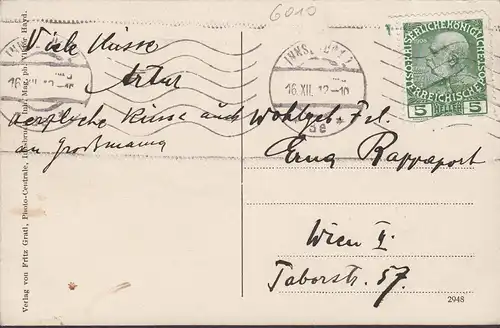 6010
Viele Küsse
Artur
herzliche Küsse auch
an Großmama
INNSBRUCK 2
16.XII.12-10
* 5e *
KAISERLICHE KÖNIGLICHE
ÖSTERREICHISCHE
5 HELLER 5
Wohlgeb. Frl.
Erna Rappaport
Wien II.
Taborstr. 57
Verlag von Fritz Gratl, Photo-Centrale, Innsbruck
Mag. ph. Viktor Hayd.
2948